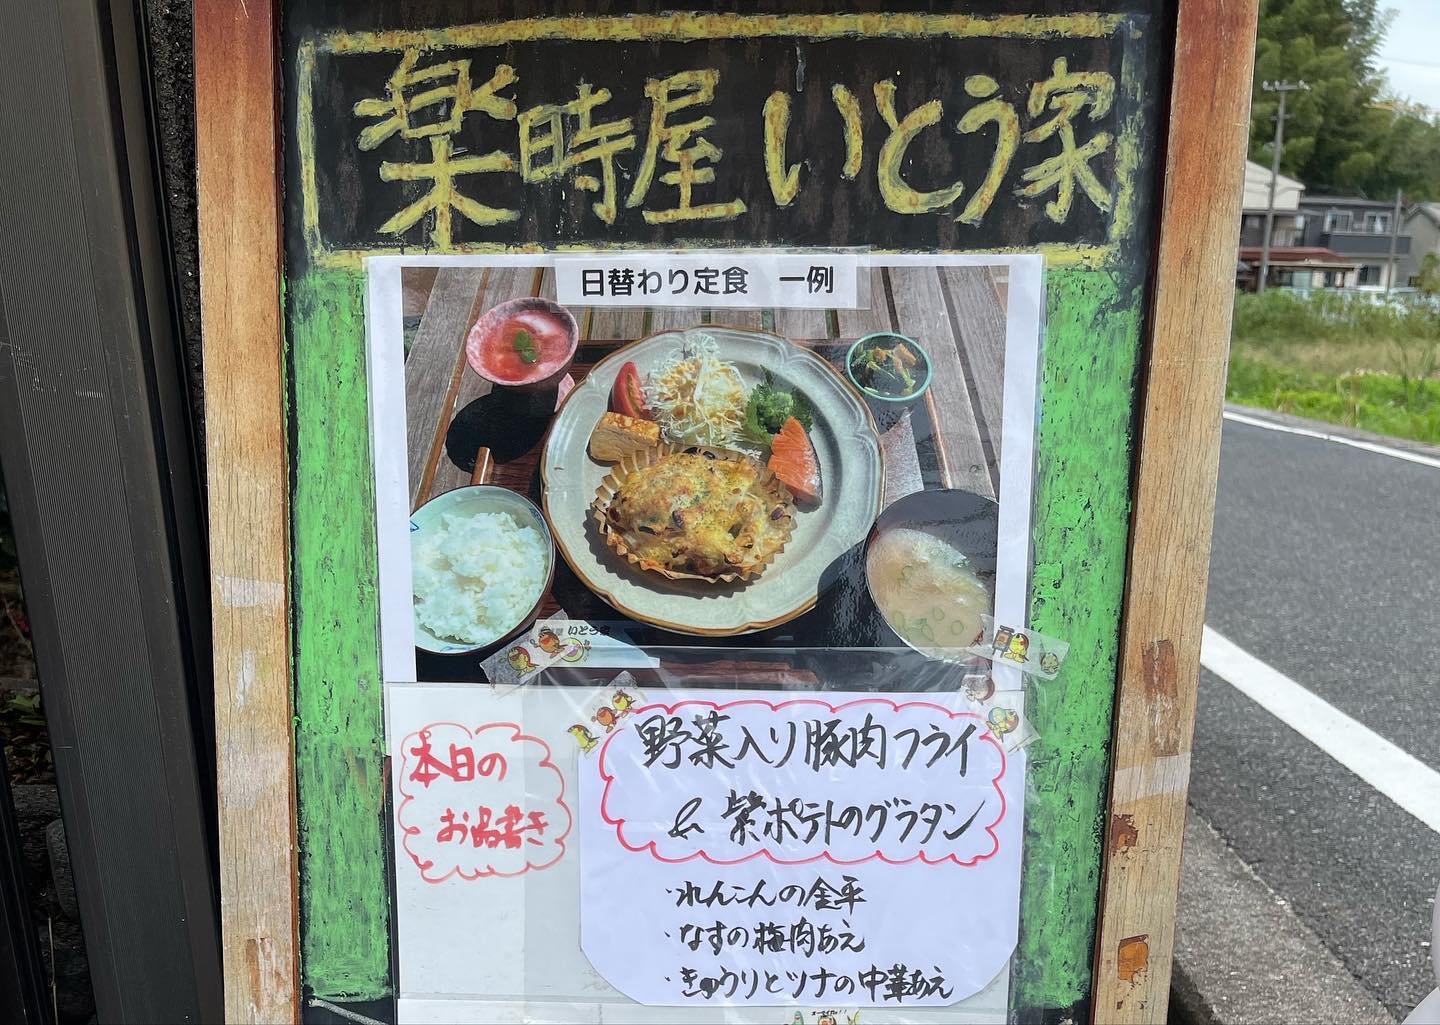 楽時屋 いとう家
日替わり定食 一例
いとう家
本日の
お品書き
野菜入り豚肉フライ
& 紫ポテトのグラタン
・れんこんの金平
・なすの梅肉あえ
・きゅうりとツナの中華あえ